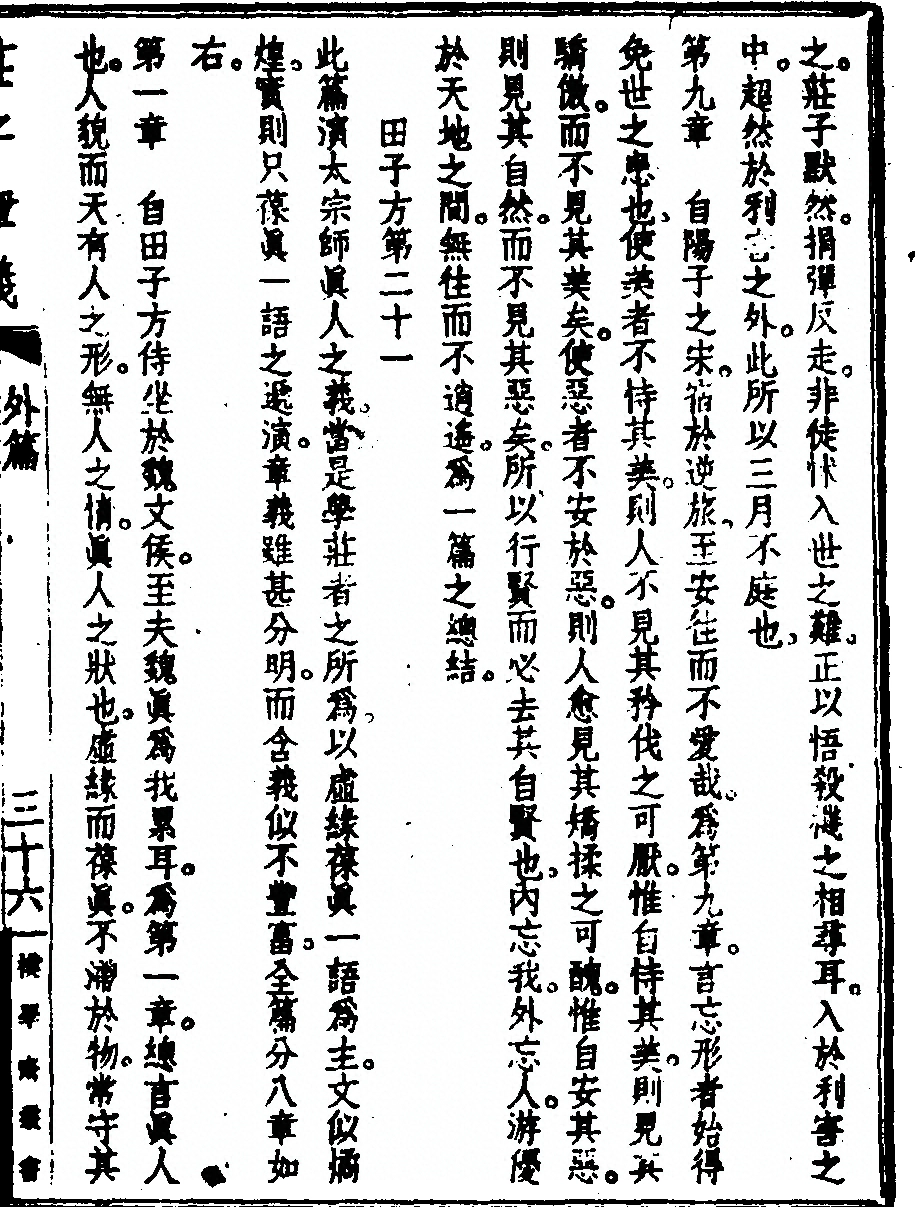 之。莊子默然。捐彈反走。非徒怵入世之難。正以悟殺機之相尋耳。入於利害之
中。超然於利害之外。此所以三月不庭也。
第九章　自陽子之宋。宿於逆旅、至安往而不愛哉。為第九章。言忘形者始得
免世之患也、使美者不恃其美。則人不見其矜伐之可厭。惟自恃其美。則見其
驕傲。而不見其美矣。使惡者不安於惡。則人愈見其矯揉之可醜。惟自安其惡。
則見其自然。而不見其惡矣。所以行賢而必去其自賢也、內忘我。外忘人。游優
於天地之間。無往而不逍遙。為一篇之總結。
田子方第二十一
此篇演太宗師眞人之義。當是學莊者之所為、以虛緣葆眞一語為主。文似熵
煌、實則只葆眞一語之遞演。章義雖甚分明。而含義似不豐富。全篇分八章如
右。
第一章　自田子方侍坐於魏文侯。至夫魏眞為我累耳。為第一章。總言眞人
也。人貌而天有人之形。無人之情。眞人之狀也。虛緣而葆眞。不滯於物。常守其
外篇
三十六
樸學齋叢書